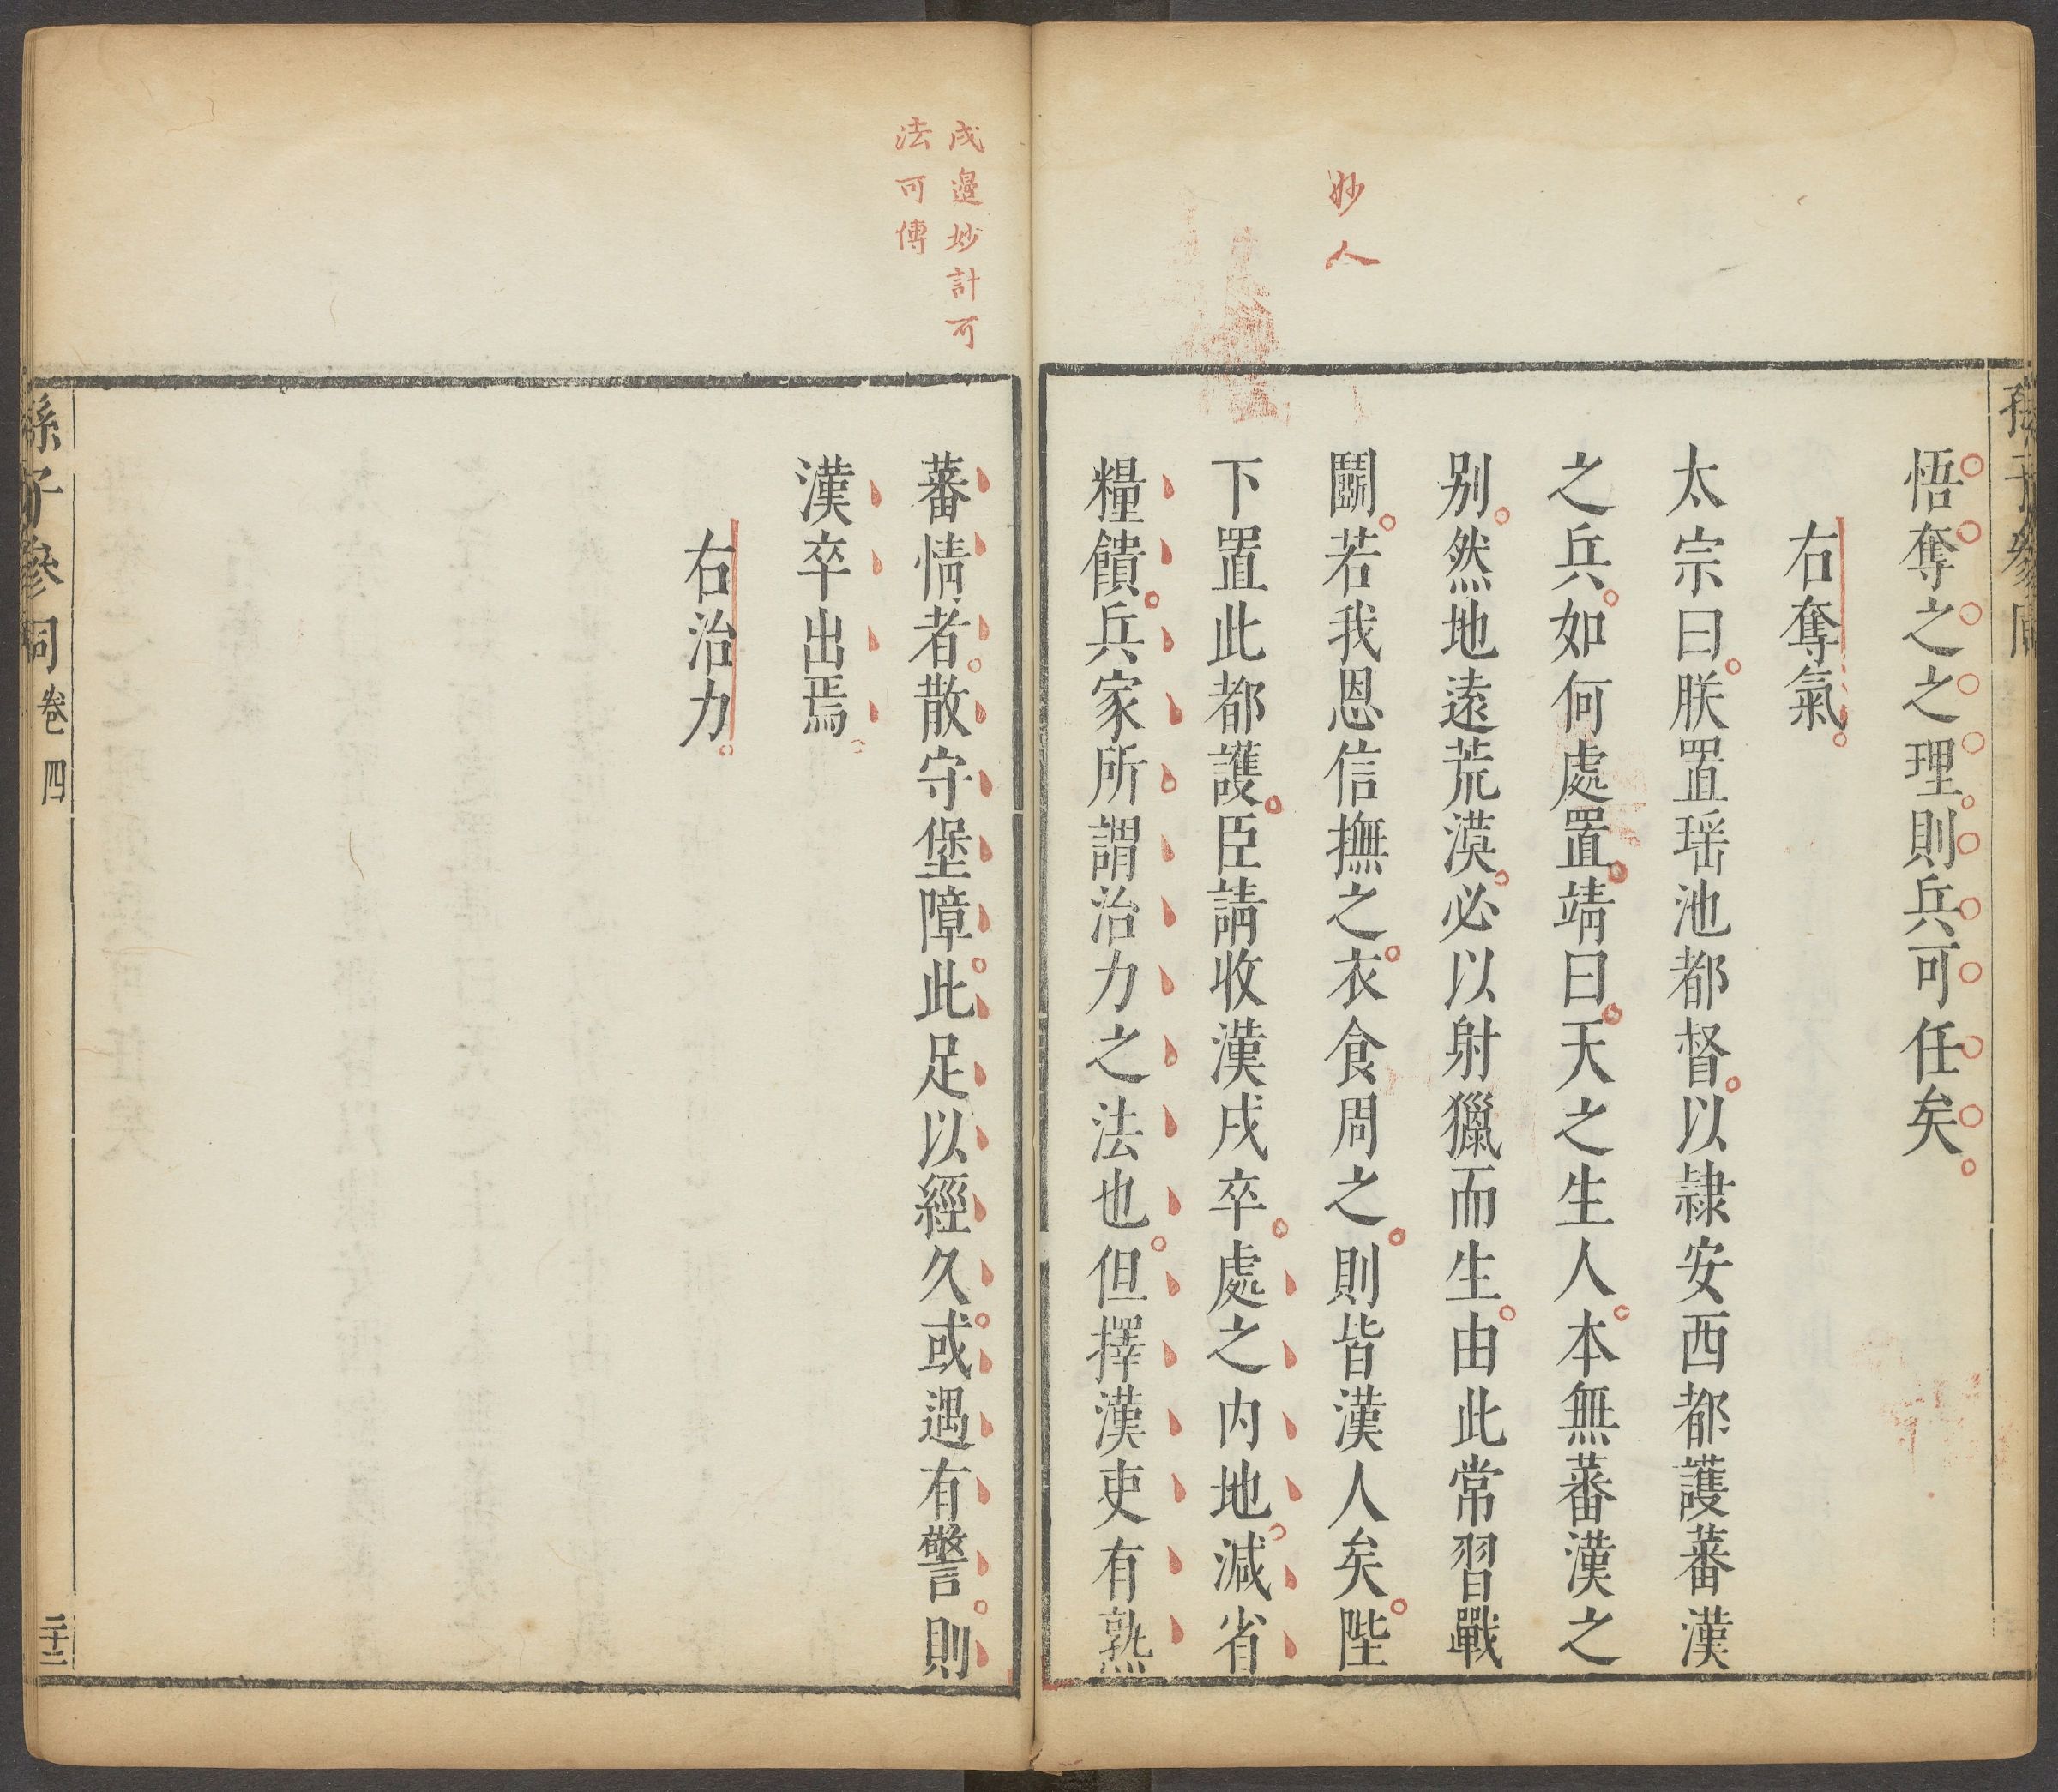 妙人
悟奪之之理則兵可任矣
右奪氣
太宗曰朕置瑶池都督以隷安西都護蕃漢
之兵如何處置靖曰天之生人本無蕃漢之
别然地逺荒漠必以射獵而生由此常習戰
鬭若我恩信撫之衣食周之則皆漢人矣陛
下置此都護臣請收漢戍卒處之内地減省
糧饋兵家所謂治力之法也但擇漢吏有熟
戍邊妙計可
法可傳
蕃情者散守堡障此足以經久或遇有警則
漢卒出焉
右治力
孫子參同 卷四 二十二